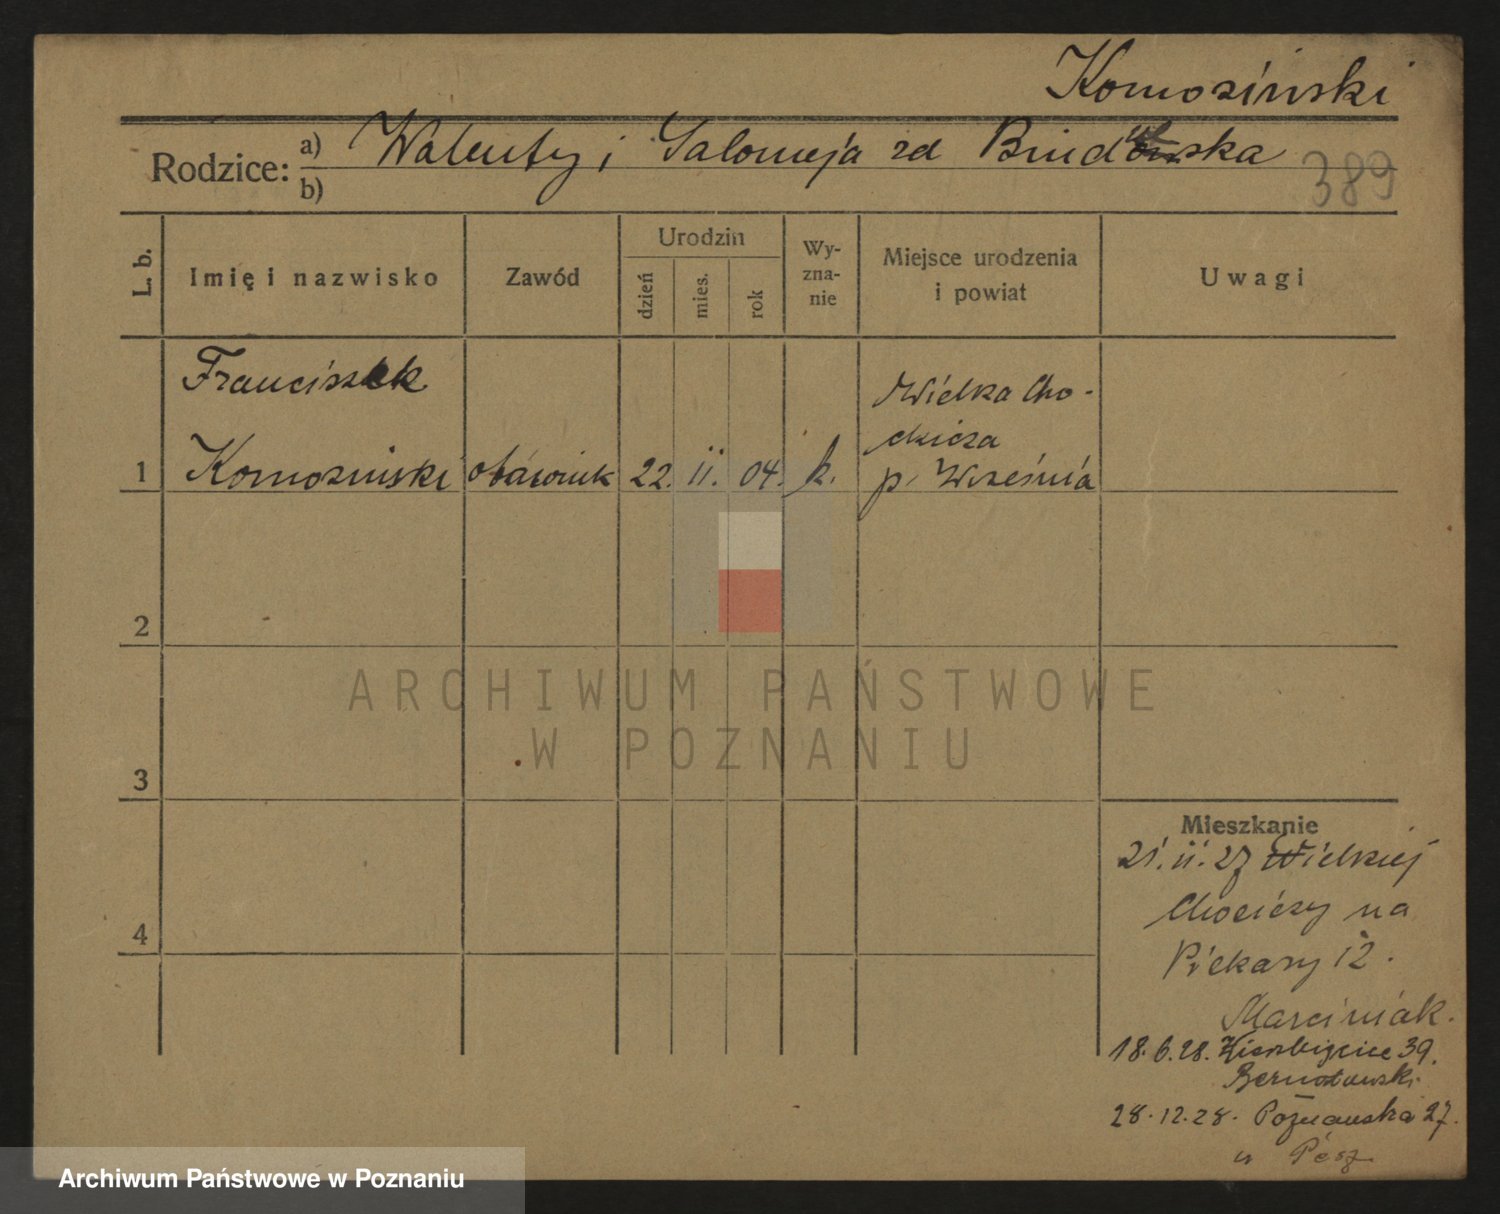 Komosiński
Rodzice: a) Walenty i Salomeja zd
b)
389
L. b.
Imię i nazwisko
Zawód
Urodzin
dzień
mies.
rok
Wy-
zna-
nie
Miejsce urodzenia
i powiat
Uwagi
Franciszek
1 Komosinski 22. II. 04. k.
Wielka Cho-
p. Wrześnią
2
3
4
ARCHIWUM PAŃSTWOWE
W POZNANIU
Mieszkanie
21. II. 27 Wielkiej
Chociczy na
Piekary 12.
Marciniak.
18. 6. 28. 39.
28. 12. 28. Poznanska 27.
u
Archiwum Państwowe w Poznaniu